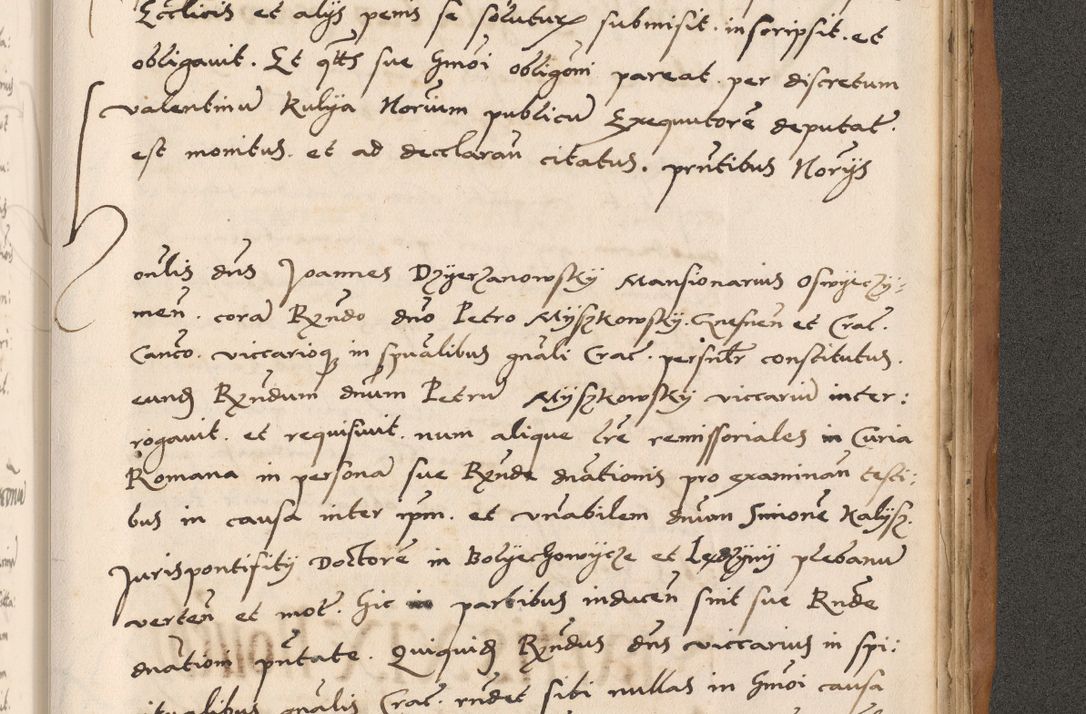 Ecclicis et alijs penis se solutur submisit. inscripsit. et
obligauit. Et qtts sue hmoi obligoni pareat per discretum
valentinu Kulija Norium publicu Exequutore deputat.
est monitus. et ad declaran citatus. prntibus Norijs
onlis dns Joannes Dzyerzanowsky Mansionarius Oswyeczy-
men. cora Rndo dno Petro Myszkowsky. Gnesnen et Crac.
Canco. viccarioq in spualibus gnali Crac. personlr constitutus.
eund Rndum dnum Petru Myszkowsky viccariu inter:
rogauit. et requisiuit. num alique lre remissoriales in Curia
Romana in persona sue Rnde dnationis pro examinan testi:
bus in causa inter ipm. et vnabilem dnum Simone Kalysz.
Jurispontifitij Doctore in Bolyechowycze et Ledzyny plebanu
verten et mot. hic partibus inducen sint sue Rnde
dnationi pntate. Quiquid Rndus dns viccarius in spi:
ritualibus gnalis Crac. rndet sibi nullas in hmoi causa